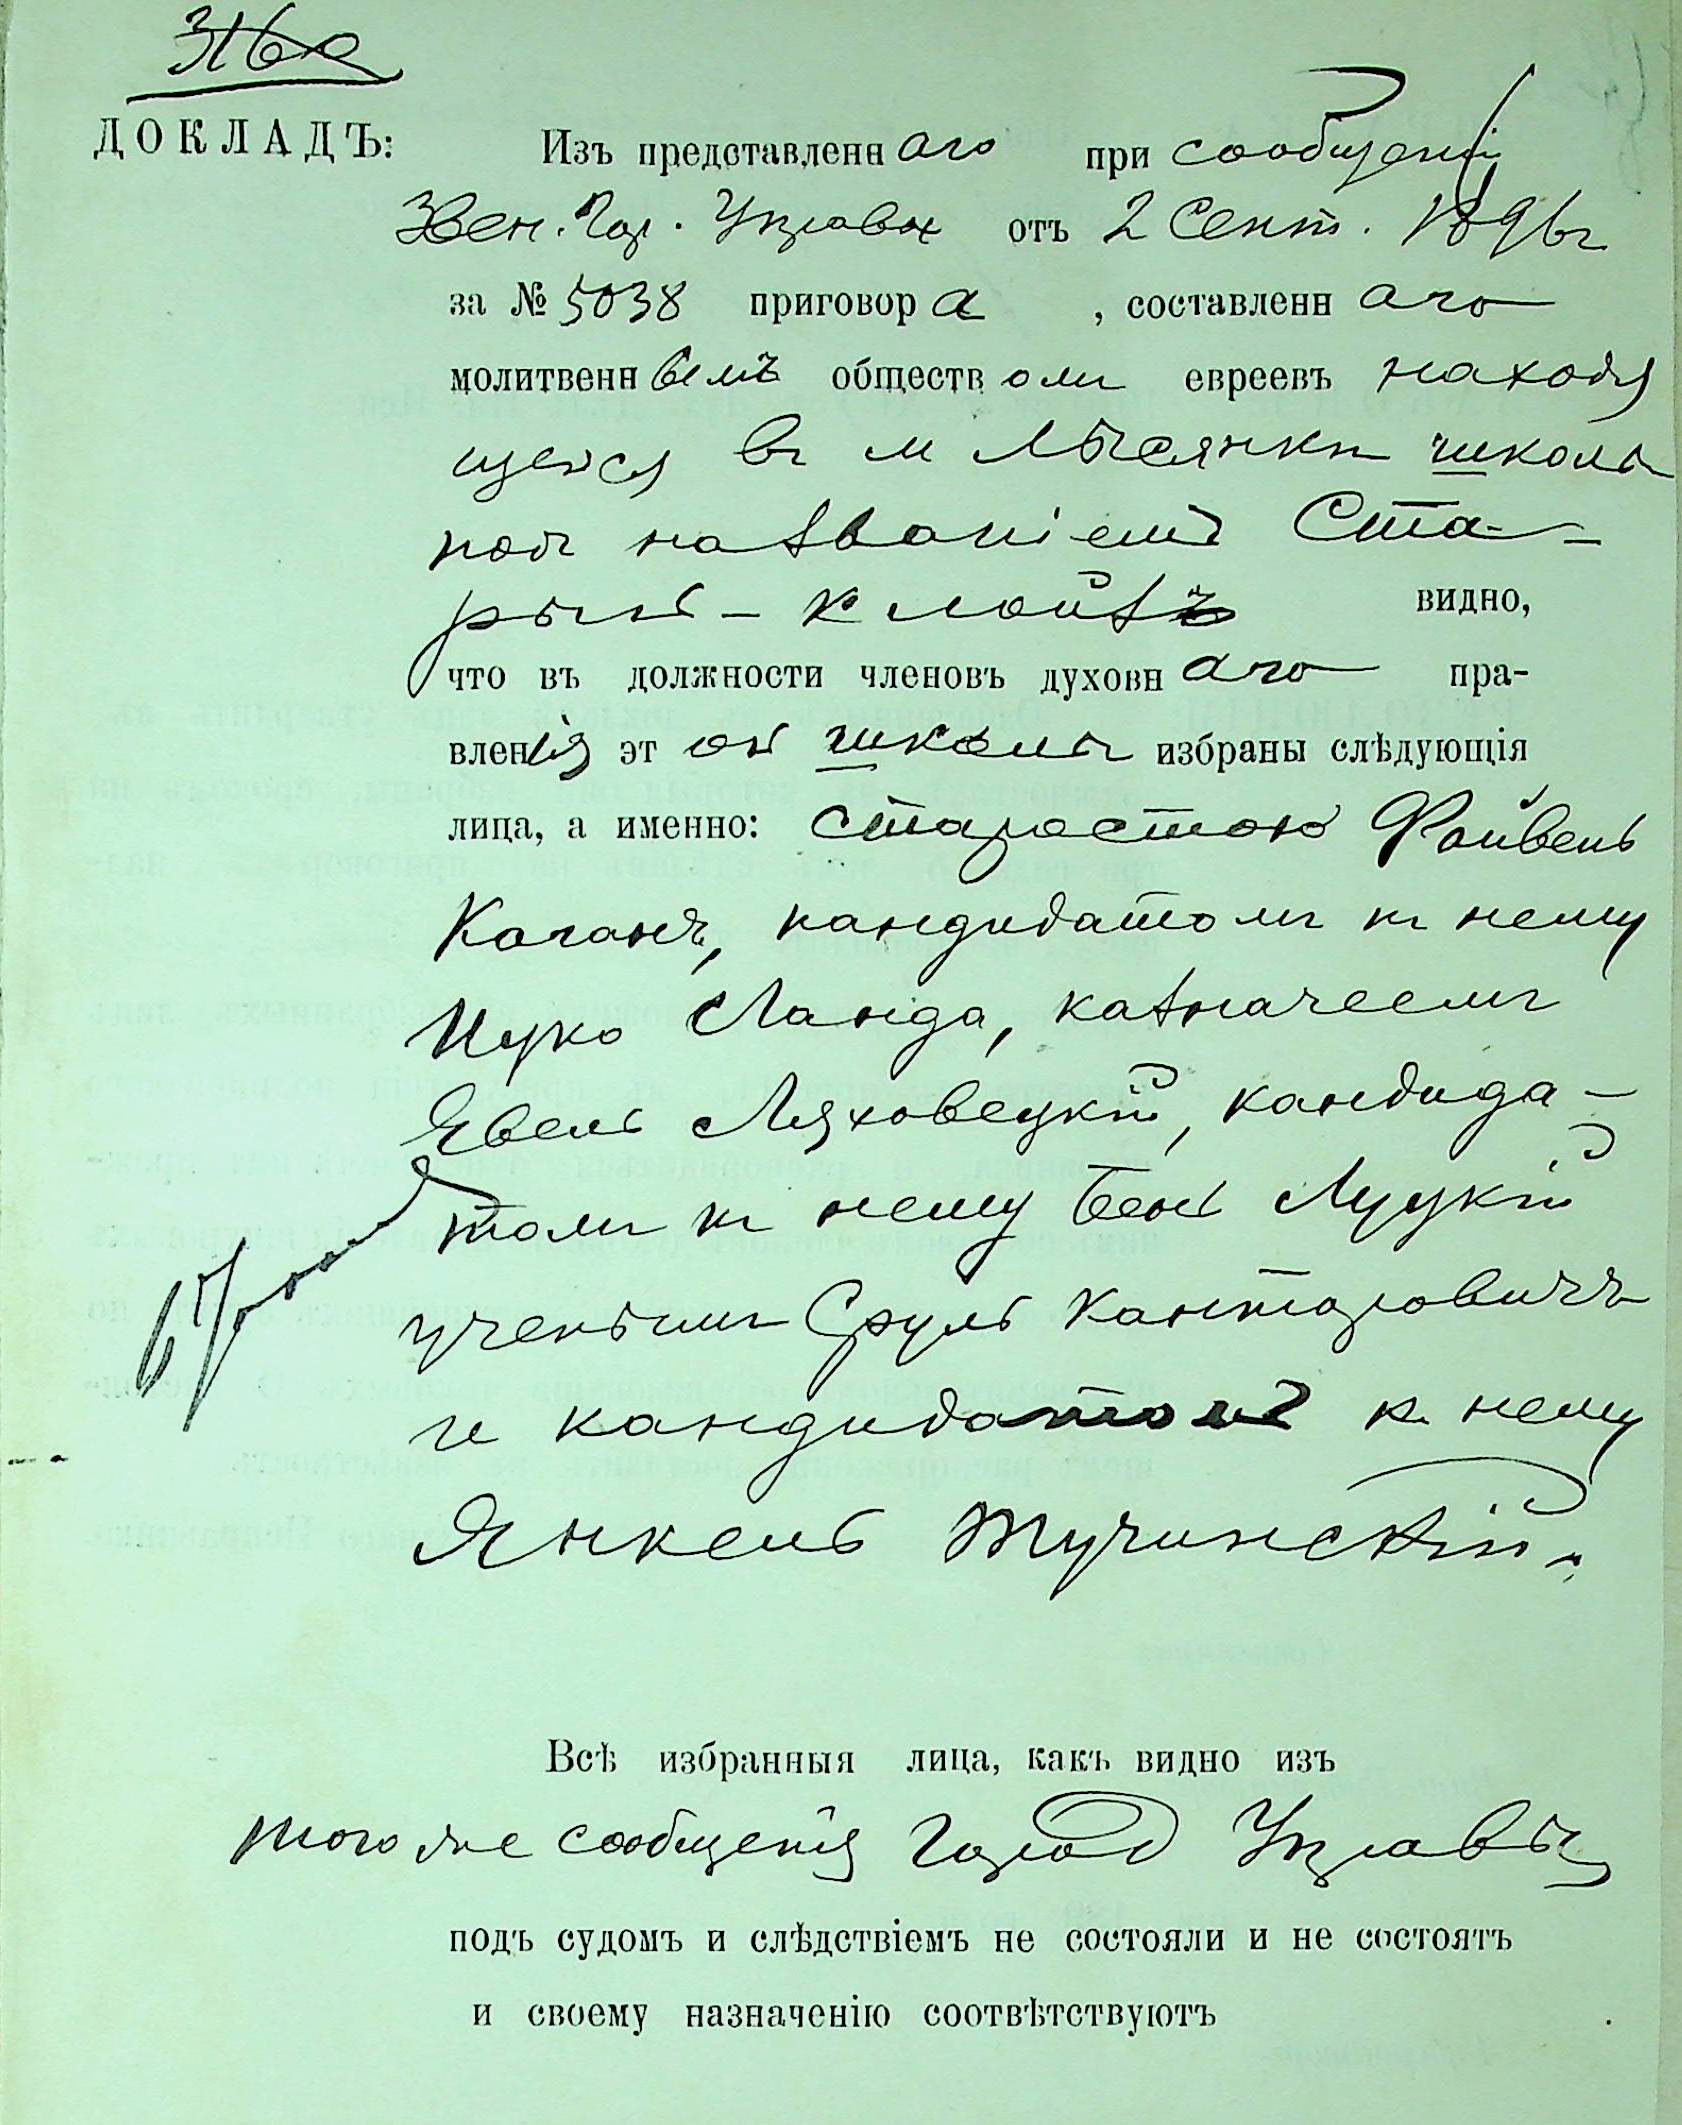 ДОКЛАДЪ: Изъ представленнаго при сообщеніи
Звен. Гор. Управы отъ 2 Сент. 1896 г
за № 5038 приговора, составленнаго
молитвеннымъ обществомъ евреевъ находя
щейся въ м Лысянки школы
подъ названіемъ Ста-
рый-клойзъ видно,
что въ должности членовъ духовнаго пра-
вленія этой школы избраны слѣдующія
лица, а именно: старостою Файвель
Каганъ, кандидатомъ къ нему
Ицко Ланда, казначеемъ
Явель Ляховецкій, кандида-
томъ къ нему Бень Луцкій
ученымъ Сруль Канторовичъ
и кандидатомъ к нему
Янкель Тучинскій.
Всѣ избранныя лица, какъ видно изъ
того же сообщенія Город Управы
подъ судомъ и слѣдствіемъ не состояли и не состоятъ
и своему назначенію соотвѣтствуютъ .